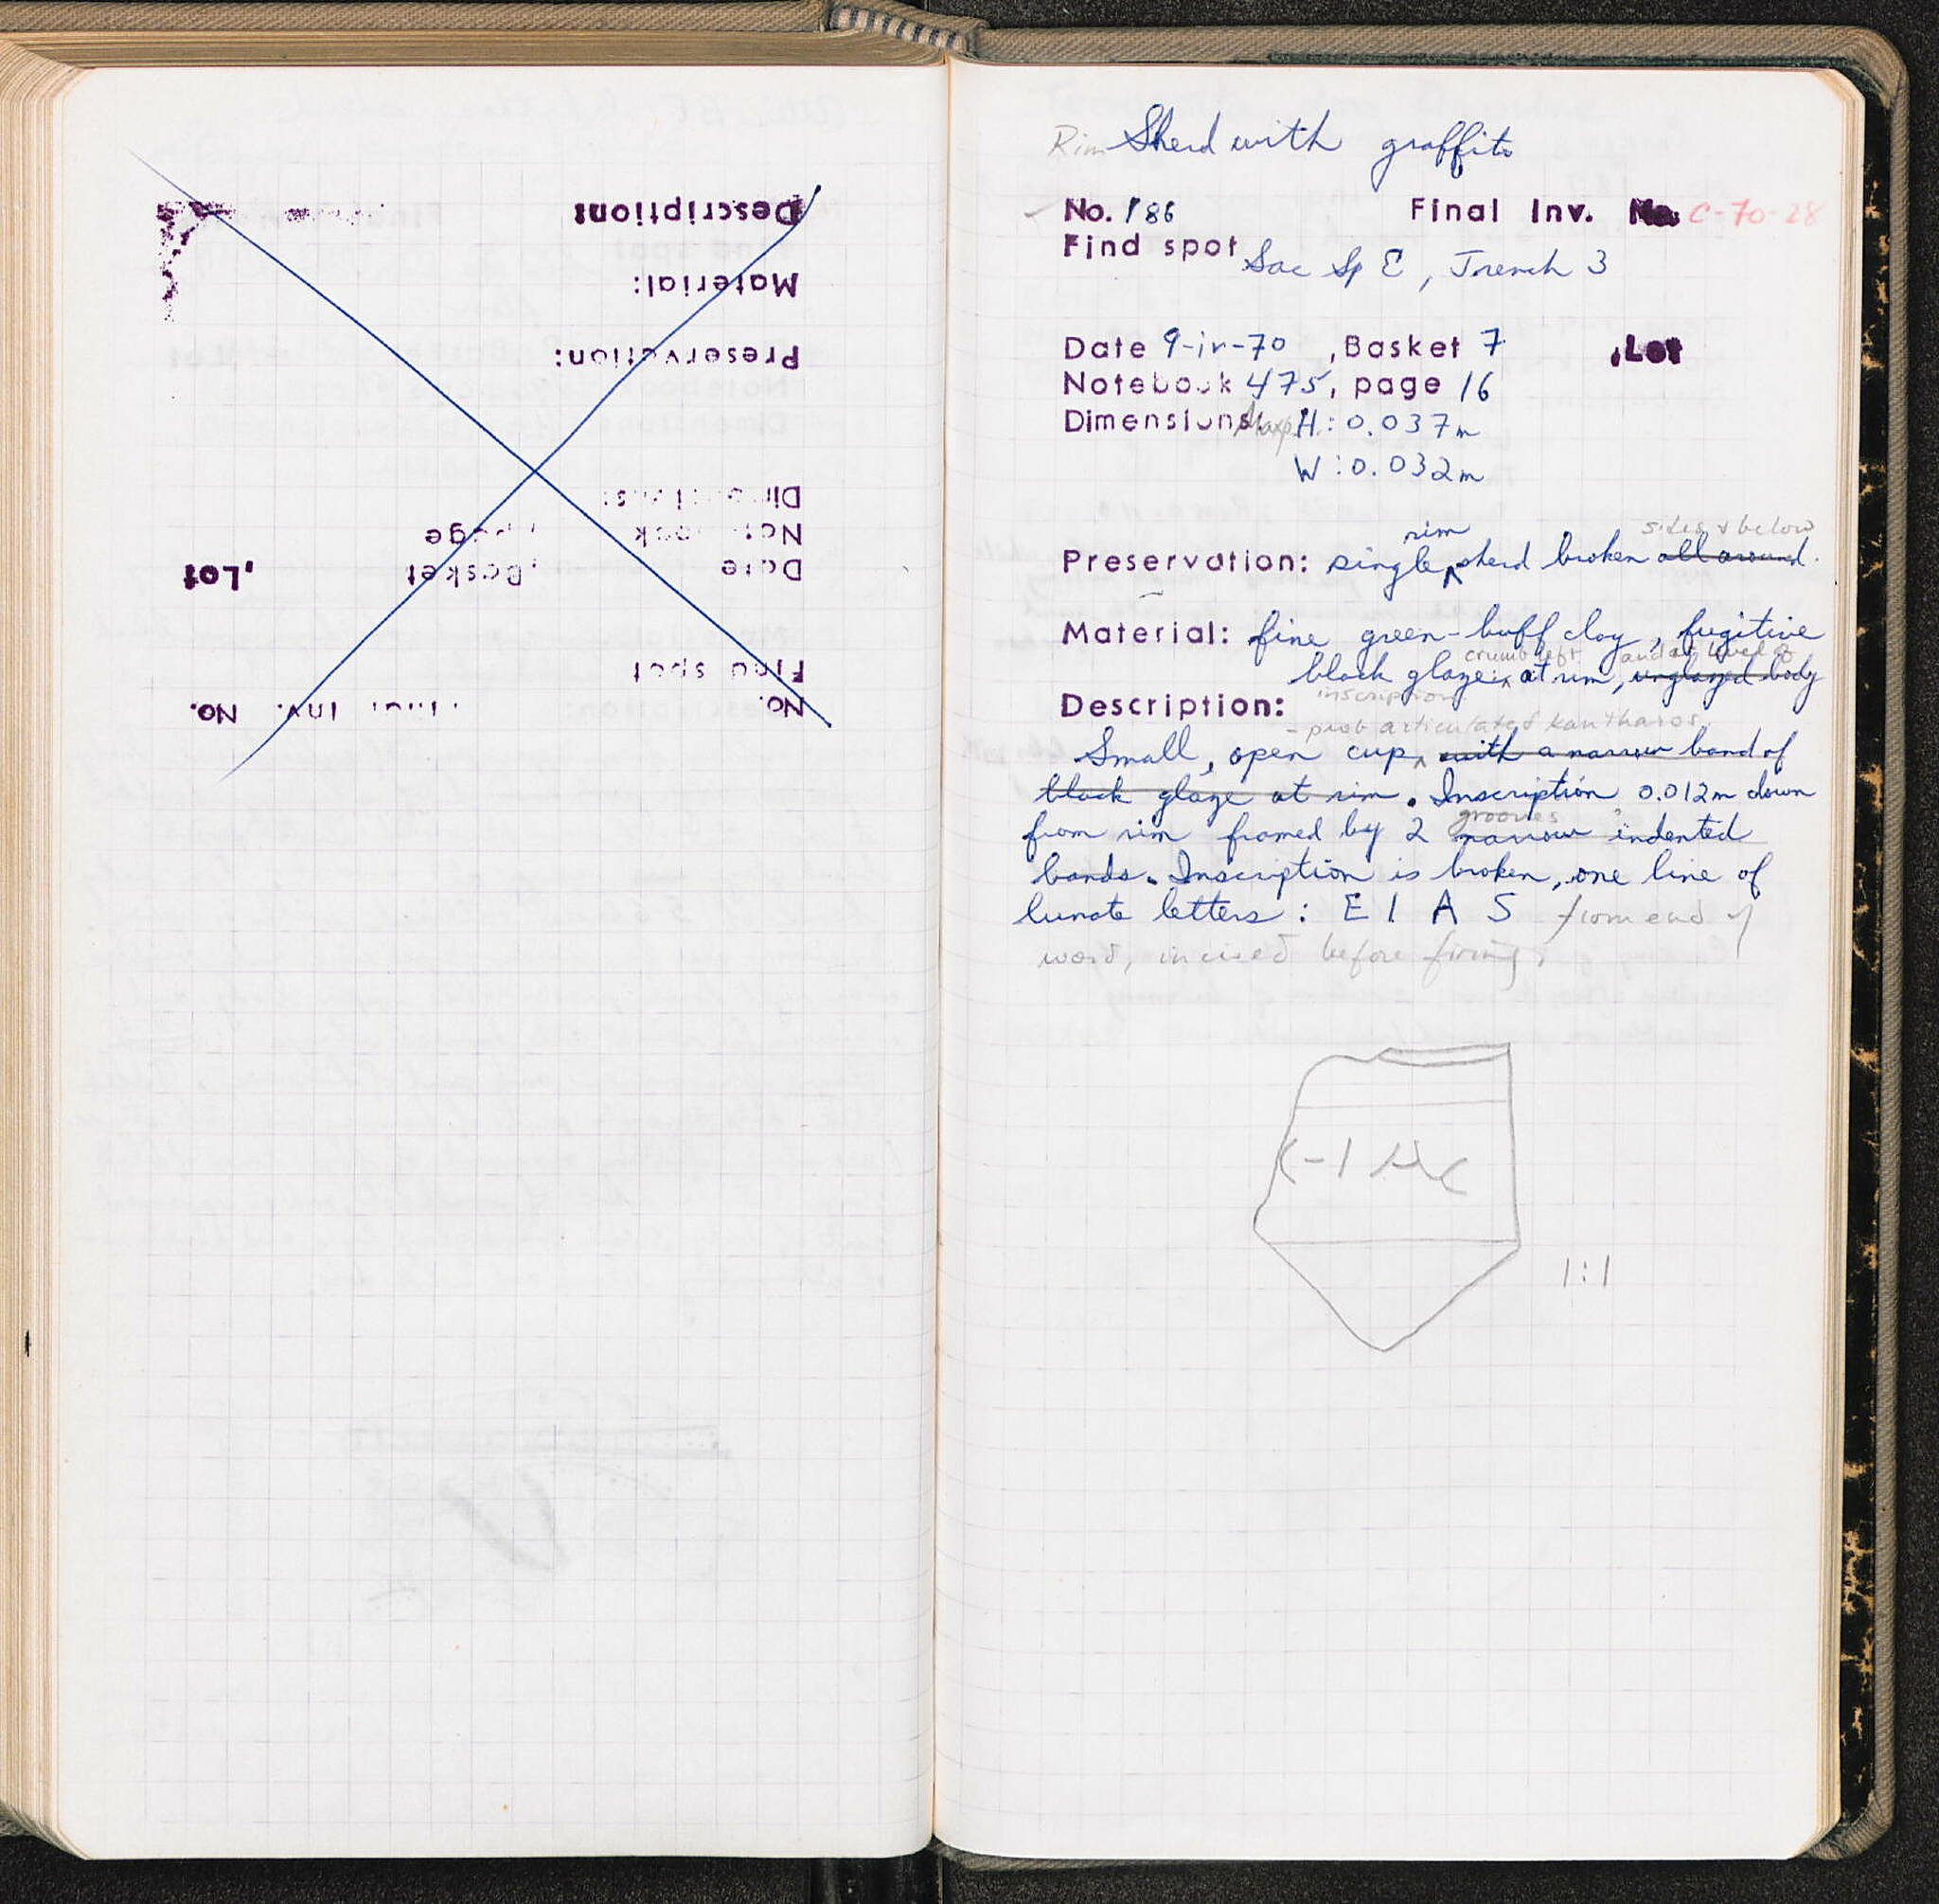 Description:
Material:
Preservation:
Dimensions:
Notebook , page
Date , Basket , Lot
Find spot
No. Final Inv. No.
Rim Sherd with graffito
No. 186 Final Inv. No. C-70-28
Find spot Sac Sp E, Trench 3
Date 9-iv-70 , Basket 7 , Lot
Notebook 475, page 16
Dimensions: Maxp. H: 0.037m
W: 0.032m
rim sides & below
Preservation: single sherd broken all around.
Material: fine green-buff clay, fugitive
crumb left and at level of
black glaze at rim, unglazed body
inscription.
Description:
- prob articulated kantharos.
Small, open cup, with a narrow band of
black glaze at rim. Inscription 0.012m down
grooves
from rim framed by 2 narrow indented
bands. Inscription is broken, one line of
lunate letters: E I A S from end of
word, incised before firing.
1:1